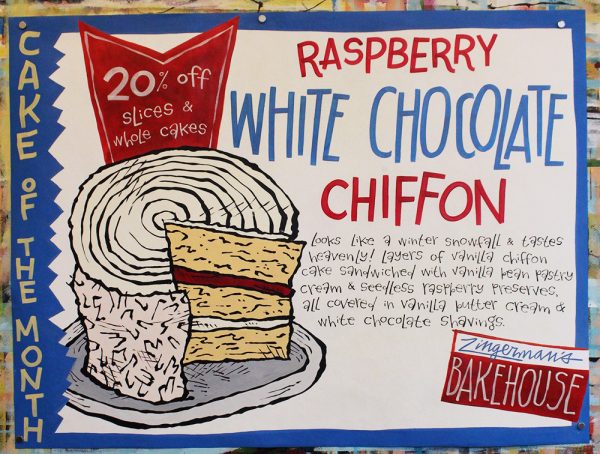 CAKE OF THE MONTH
20% off
slices &
whole cakes
RASPBERRY
WHITE CHOCOLATE
CHIFFON
Looks like a winter snowfall & tastes
heavenly! Layers of vanilla chiffon
cake sandwiched with vanilla bean pastry
cream & seedless raspberry preserves,
all covered in vanilla butter cream &
white chocolate shavings.
Zingerman's
BAKEHOUSE